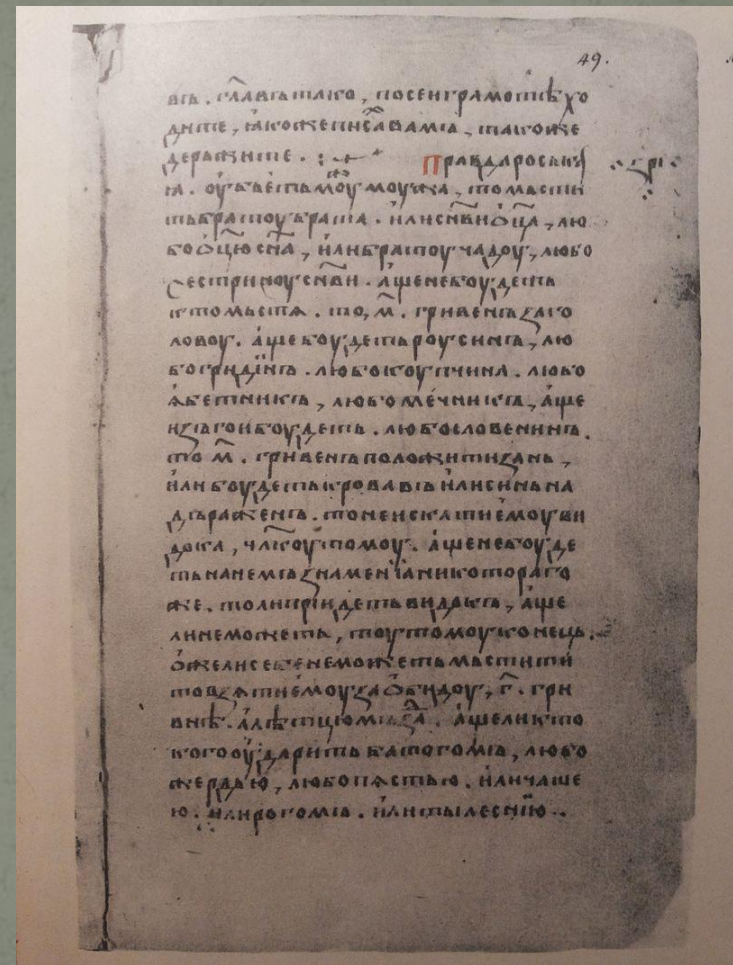 49.
въ. гл҃авъ тако, посеи грамотѣ хо
дите, ꙗкоже писа̑ вамъ, такоже
держите. Правда роськая
а. оубьеть моу(ж) моужа, то мьсти
ть братоу брата. или сн҃ви ѡц҃а, лю
бо ѡц҃ю сн҃а, или братоу чадоу, любо
сестриноу сн҃ви. аще не боудеть
кто мьстѧ. то, м҃. гривенъ за го
ловоу. аще боудеть роусинъ, лю
бо гридинъ. любо коупчина. любо
ѧбетникъ, любо мечникъ, аще
изъгои боудеть. любо словенинъ.
то м҃. гривенъ положити за нь,
или боудеть кровавъ или синь на
дъраженъ. то не искати емоу ви
дока, чл҃коу томоу. аще не боуде
ть на немъ знаменїа никоторагѡ
же. то ли прїидеть видокъ, аще
ли не можеть, тоу томоу конець.
ѡже ли себе не можеть мьстити
то взѧти емоу за ѡбидоу, г҃. гри
внѣ. а лѣтцю мъзда. аще ли кто
кого оударить батогомъ, любо
жердью, любо пѧстью. или чаше
ю. или рогомъ. или тылеснїю.